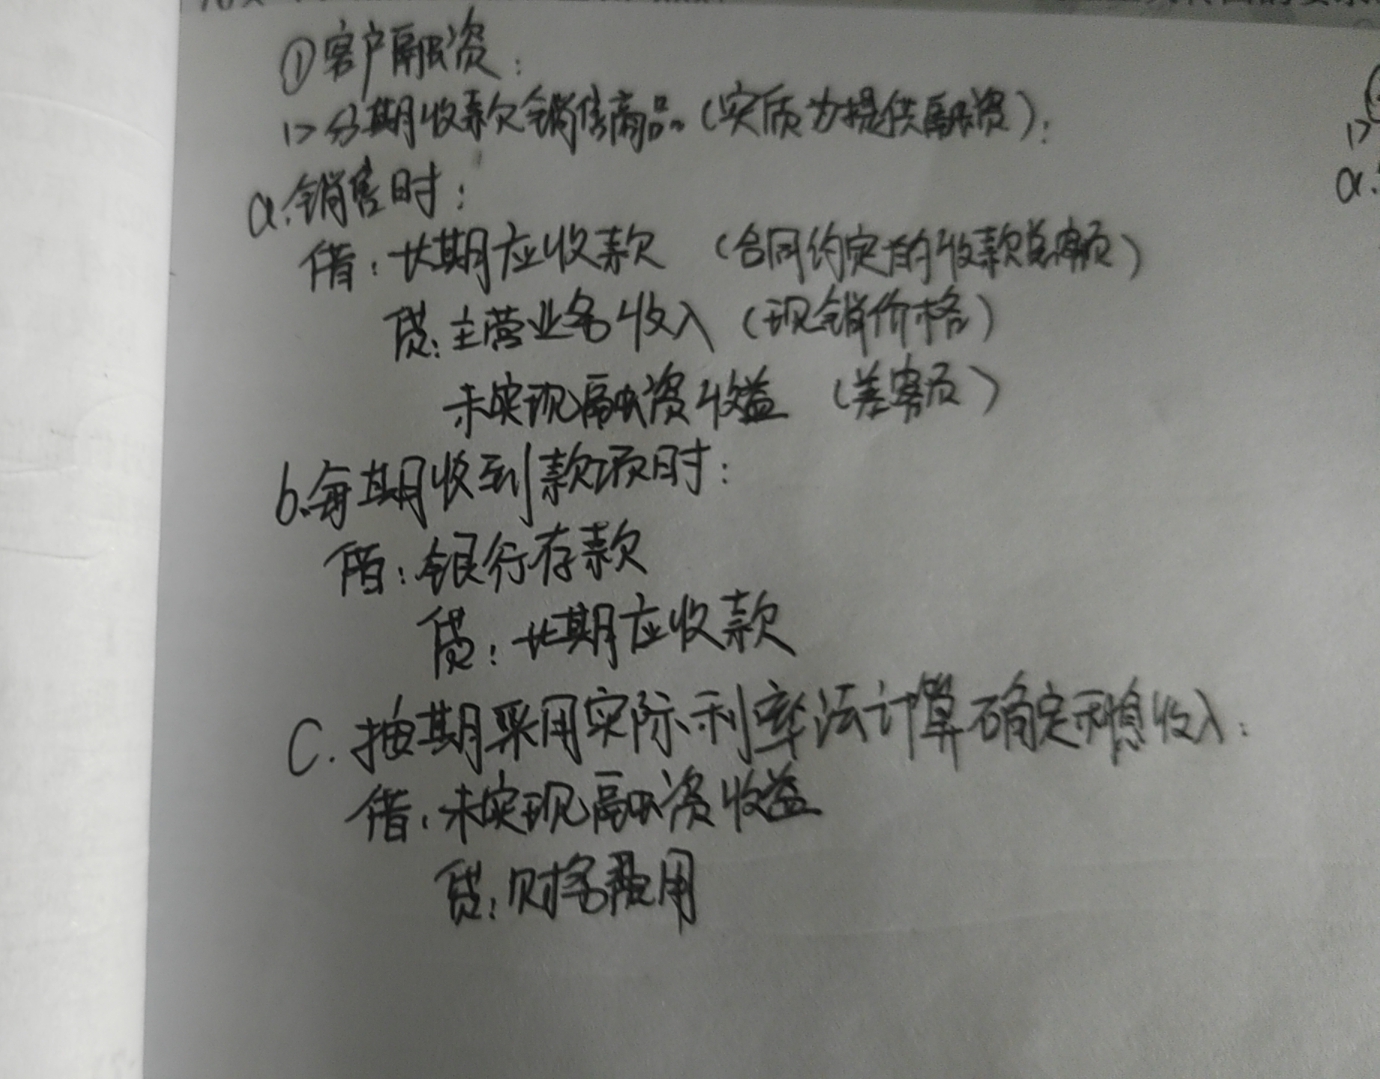 ①客户融资：
1>分期收款销售商品（实质为提供融资）：
a.销售时：
借：长期应收款（合同约定的收款总额）
贷：主营业务收入（现销价格）
未实现融资收益（差额）
b.每期收到款项时：
借：银行存款
贷：长期应收款
C.按期采用实际利率法计算确定利息收入：
借：未实现融资收益
贷：财务费用
1>
a.